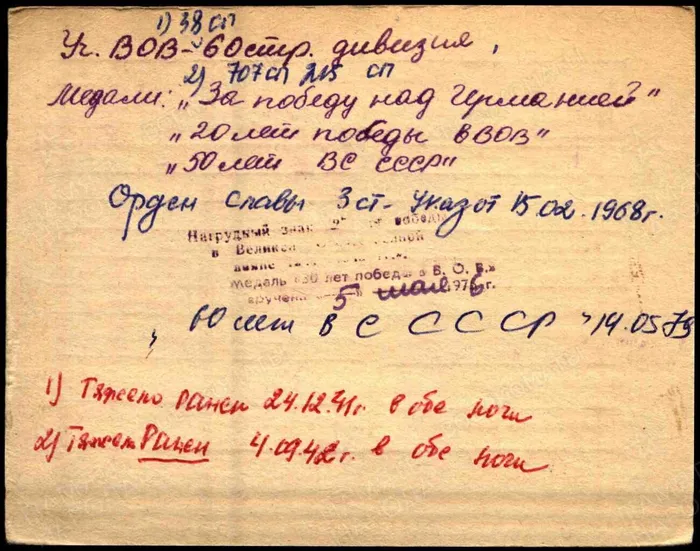 1) 38 сп
Уч. ВОВ - 60 стр. дивизия,
2) 707 сп сп
Медали: „За победу над Германией"
„20 лет победы в ВОВ"
„50 лет ВС СССР"
Орден Славы 3 ст- Указ от 15.02.1968г.
Нагрудный знак победы
в Великой
войне
медаль «30 лет победы в В. О. В.»
вручена 5 мая 1976 г.
„ 60 лет В С С С С Р " 14.05.79
1) Тяжело ранен 24.12.41г. в обе ноги
2) Тяжел Ранен 4.09.42г. в обе ноги